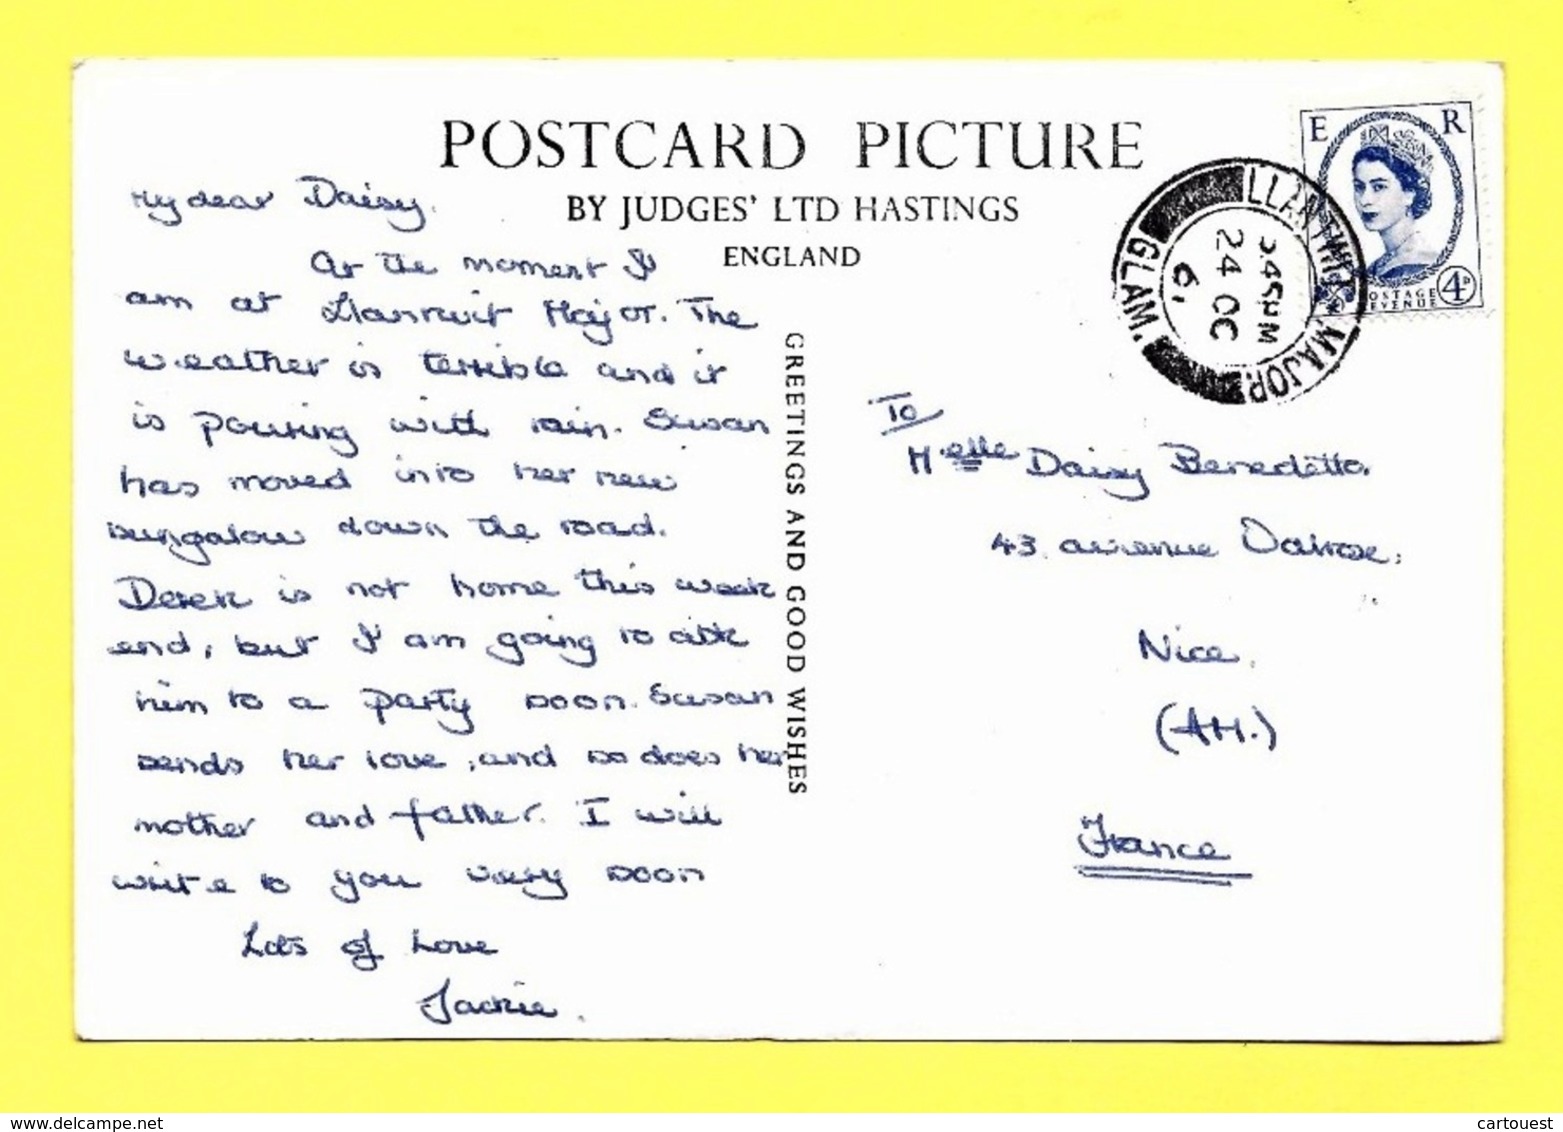 POSTCARD PICTURE
BY JUDGES' LTD HASTINGS
ENGLAND
My dear Daisy,
At the moment I
am at Llantwit Major. The
weather is terrible and it
is pouring with rain. Susan
has moved into her new
bungalow down the road.
Derek is not home this week
end, but I am going to ask
him to a party soon. Susan
sends her love, and so does her
mother and father. I will
write to you very soon
Lots of Love
Jackie.
GREETINGS AND GOOD WISHES
E R
POSTAGE
REVENUE
4D
LLANTWIT MAJOR
GLAM.
45PM
24 OC
To
Melle Daisy Benedetto.
43. avenue
Nice.
(AM.)
France
delcampe.net
cartouest